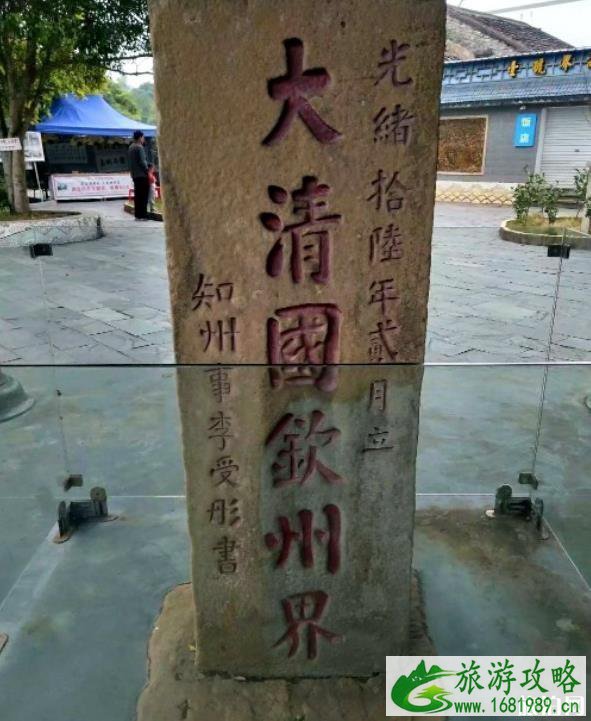 光緒拾陸年貳月立
大清國欽州界
知州事李受彤書
饭店
旅游攻略
www.1681989.cn